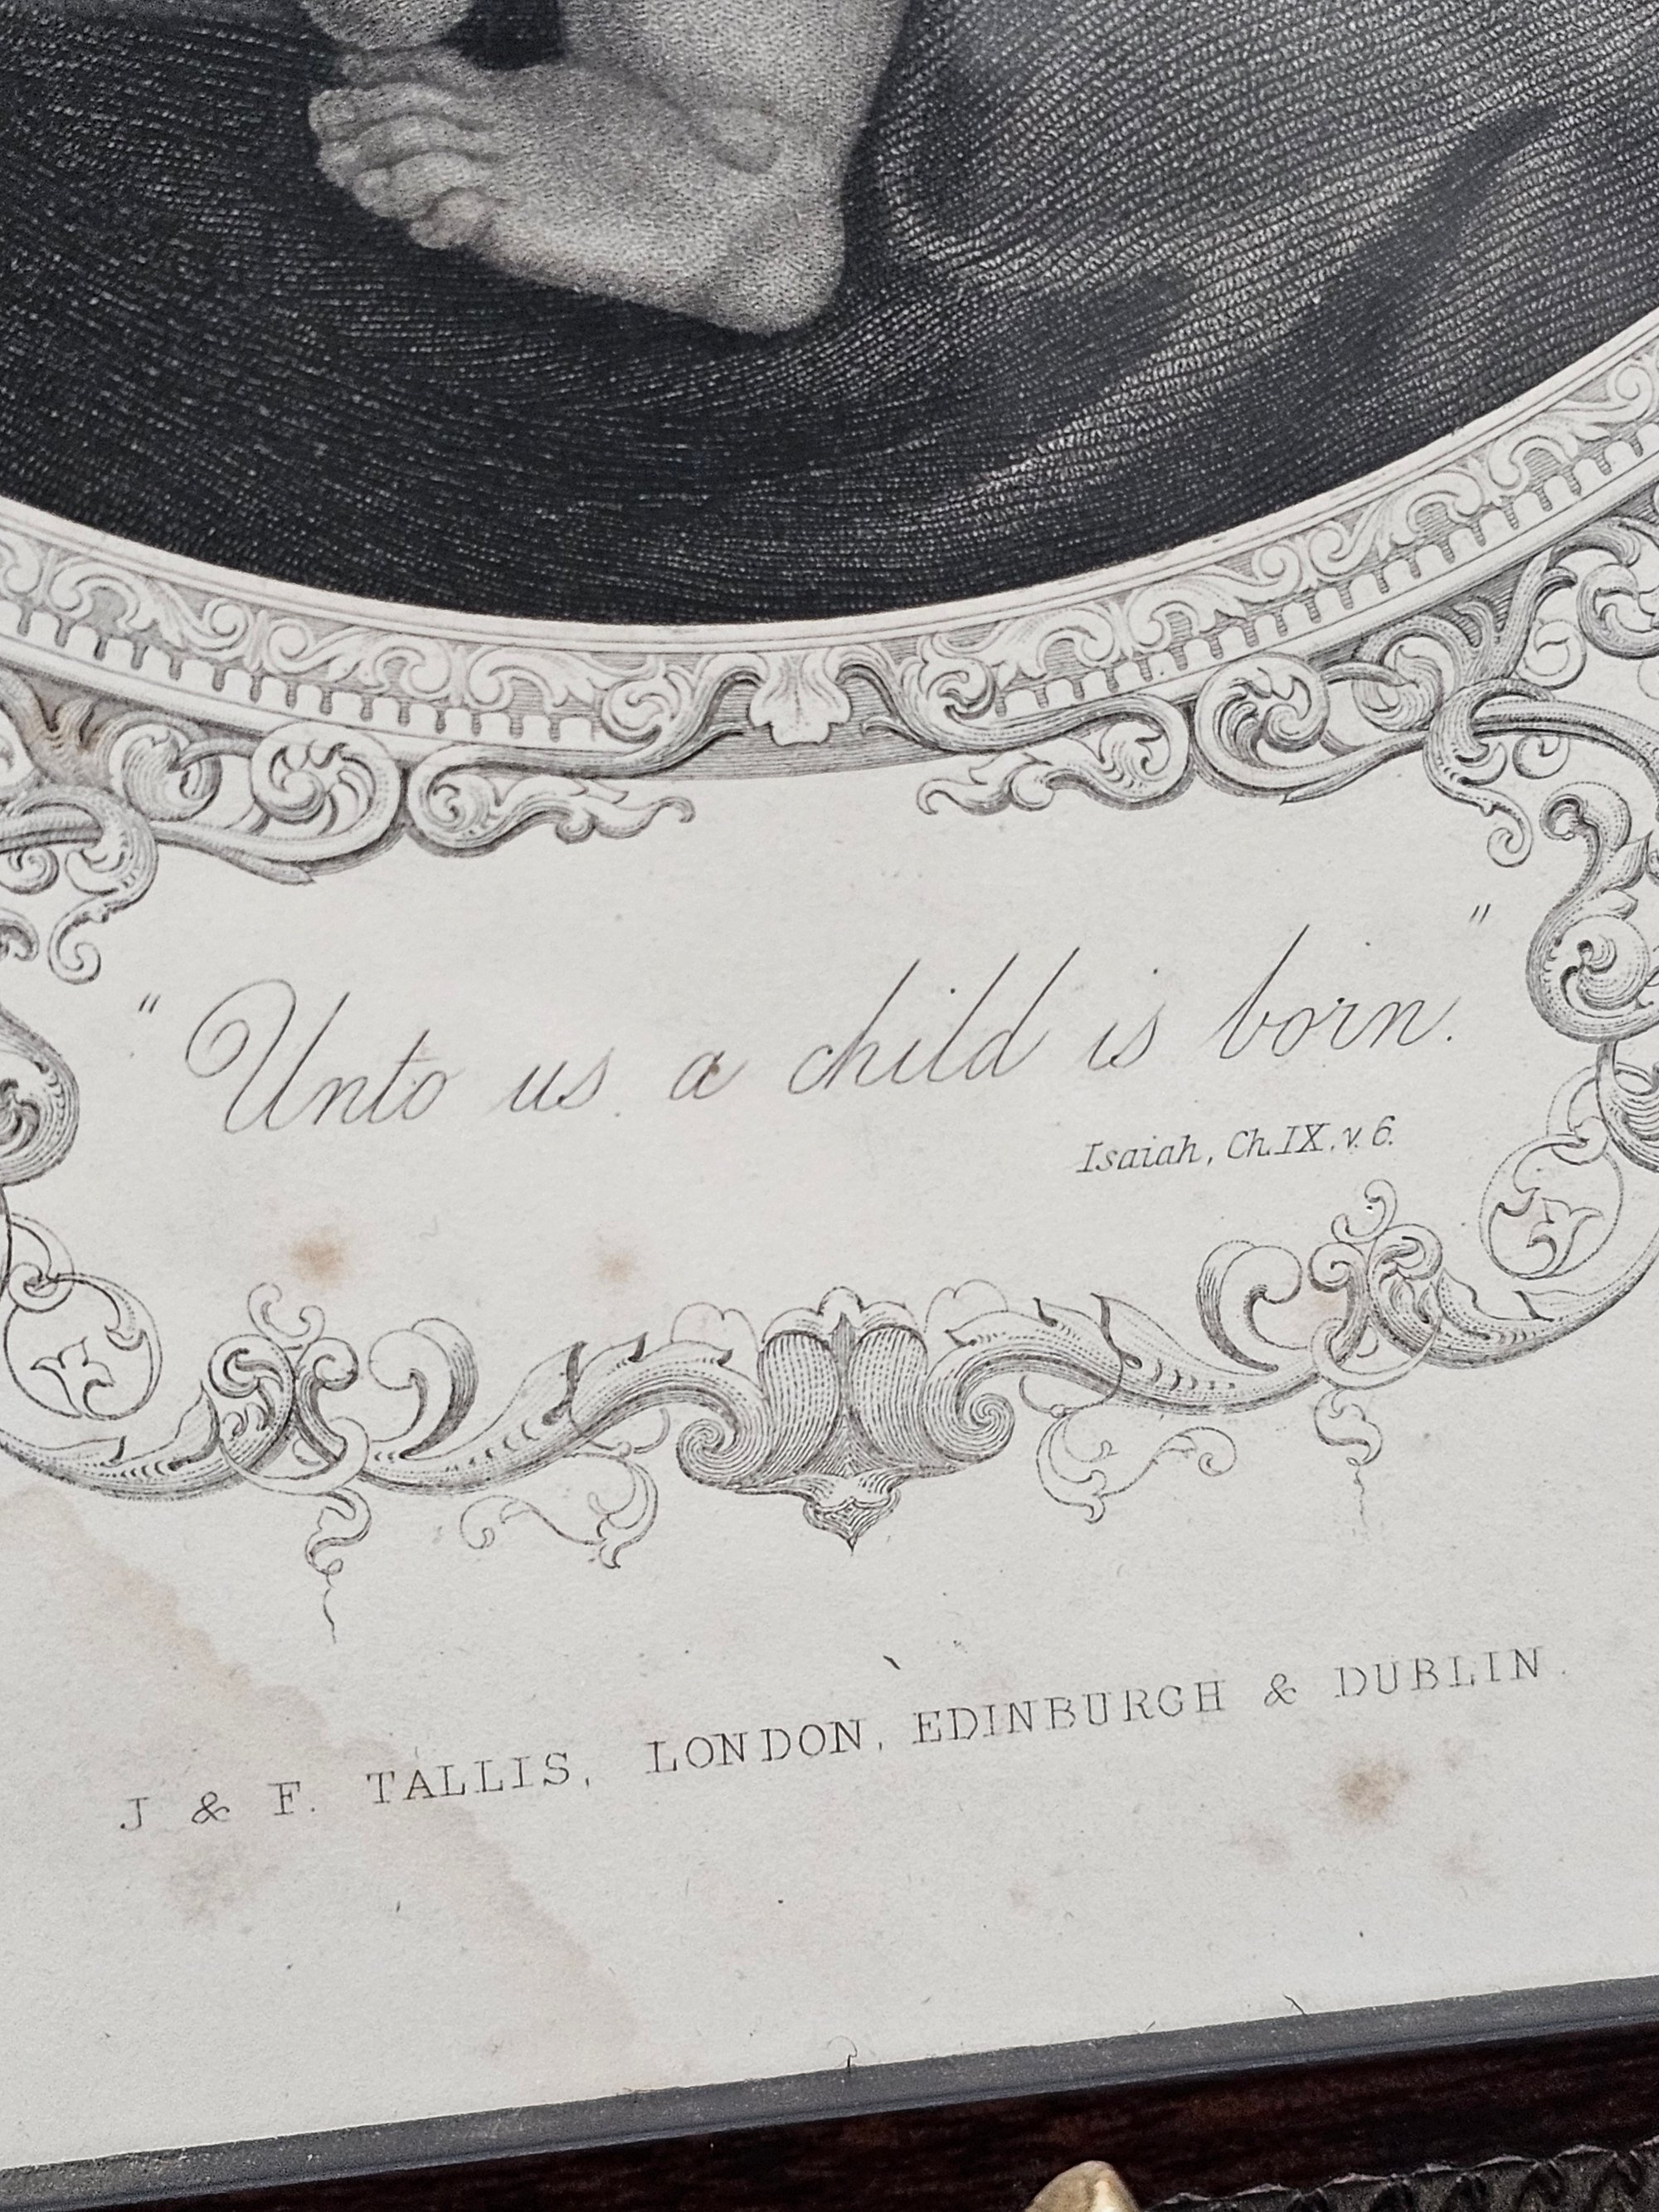 "Unto us a child is born."
Isaiah, Ch. IX. v. 6.
J & F. TALLIS, LONDON, EDINBURGH & DUBLIN.